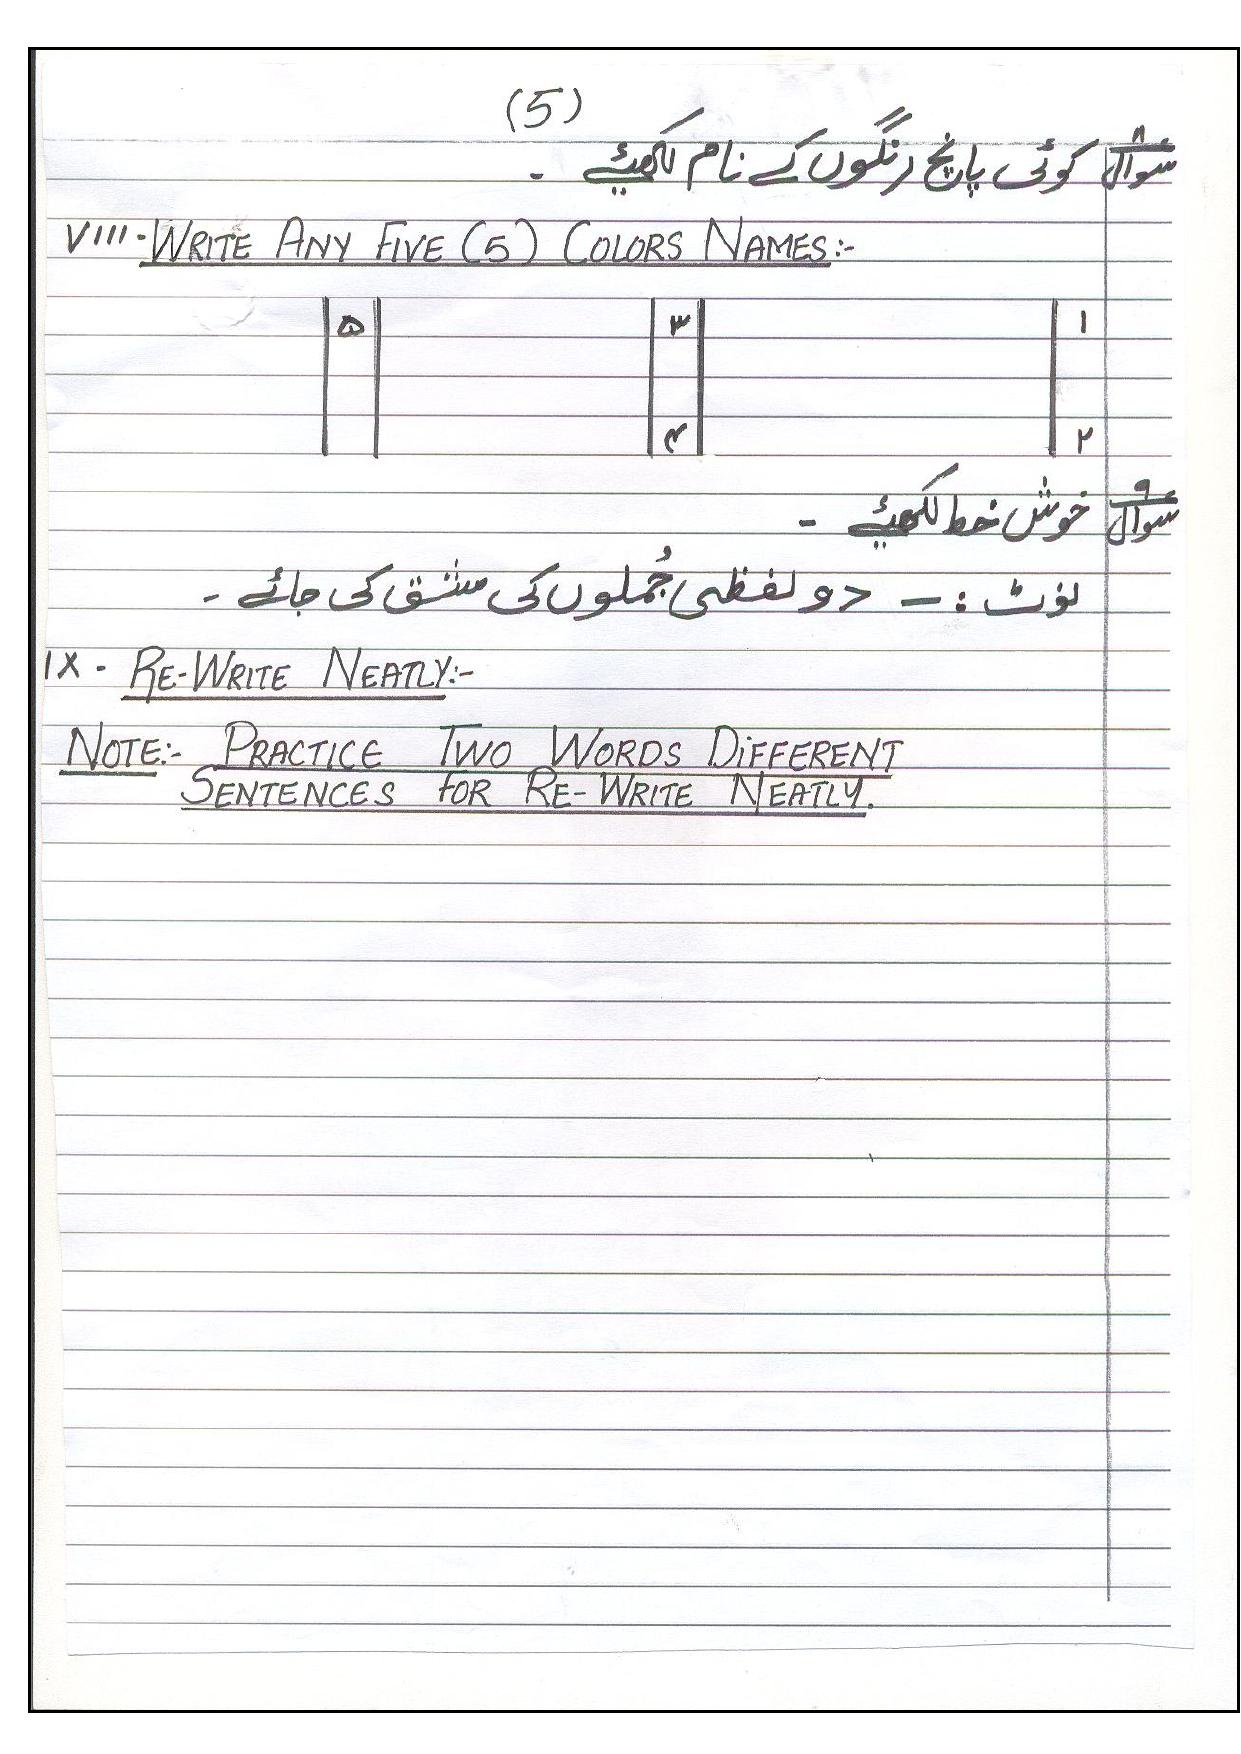 (5)
سوال ۸ کوئی پانچ رنگوں کے نام لکھیئے ۔
VIII- WRITE ANY FIVE (5) COLORS NAMES:-
۱ ۳ ۵
۲ ۴
سوال ۹ خوش خط لکھیئے ۔
نوٹ :- دو لفظی جُملوں کی مشق کی جائے ۔
IX - RE-WRITE NEATLY:-
NOTE:- PRACTICE TWO WORDS DIFFERENT
SENTENCES FOR RE-WRITE NEATLY.